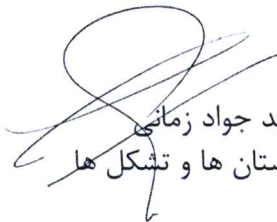 د جواد زمانی
ستان ها و تشکل ها